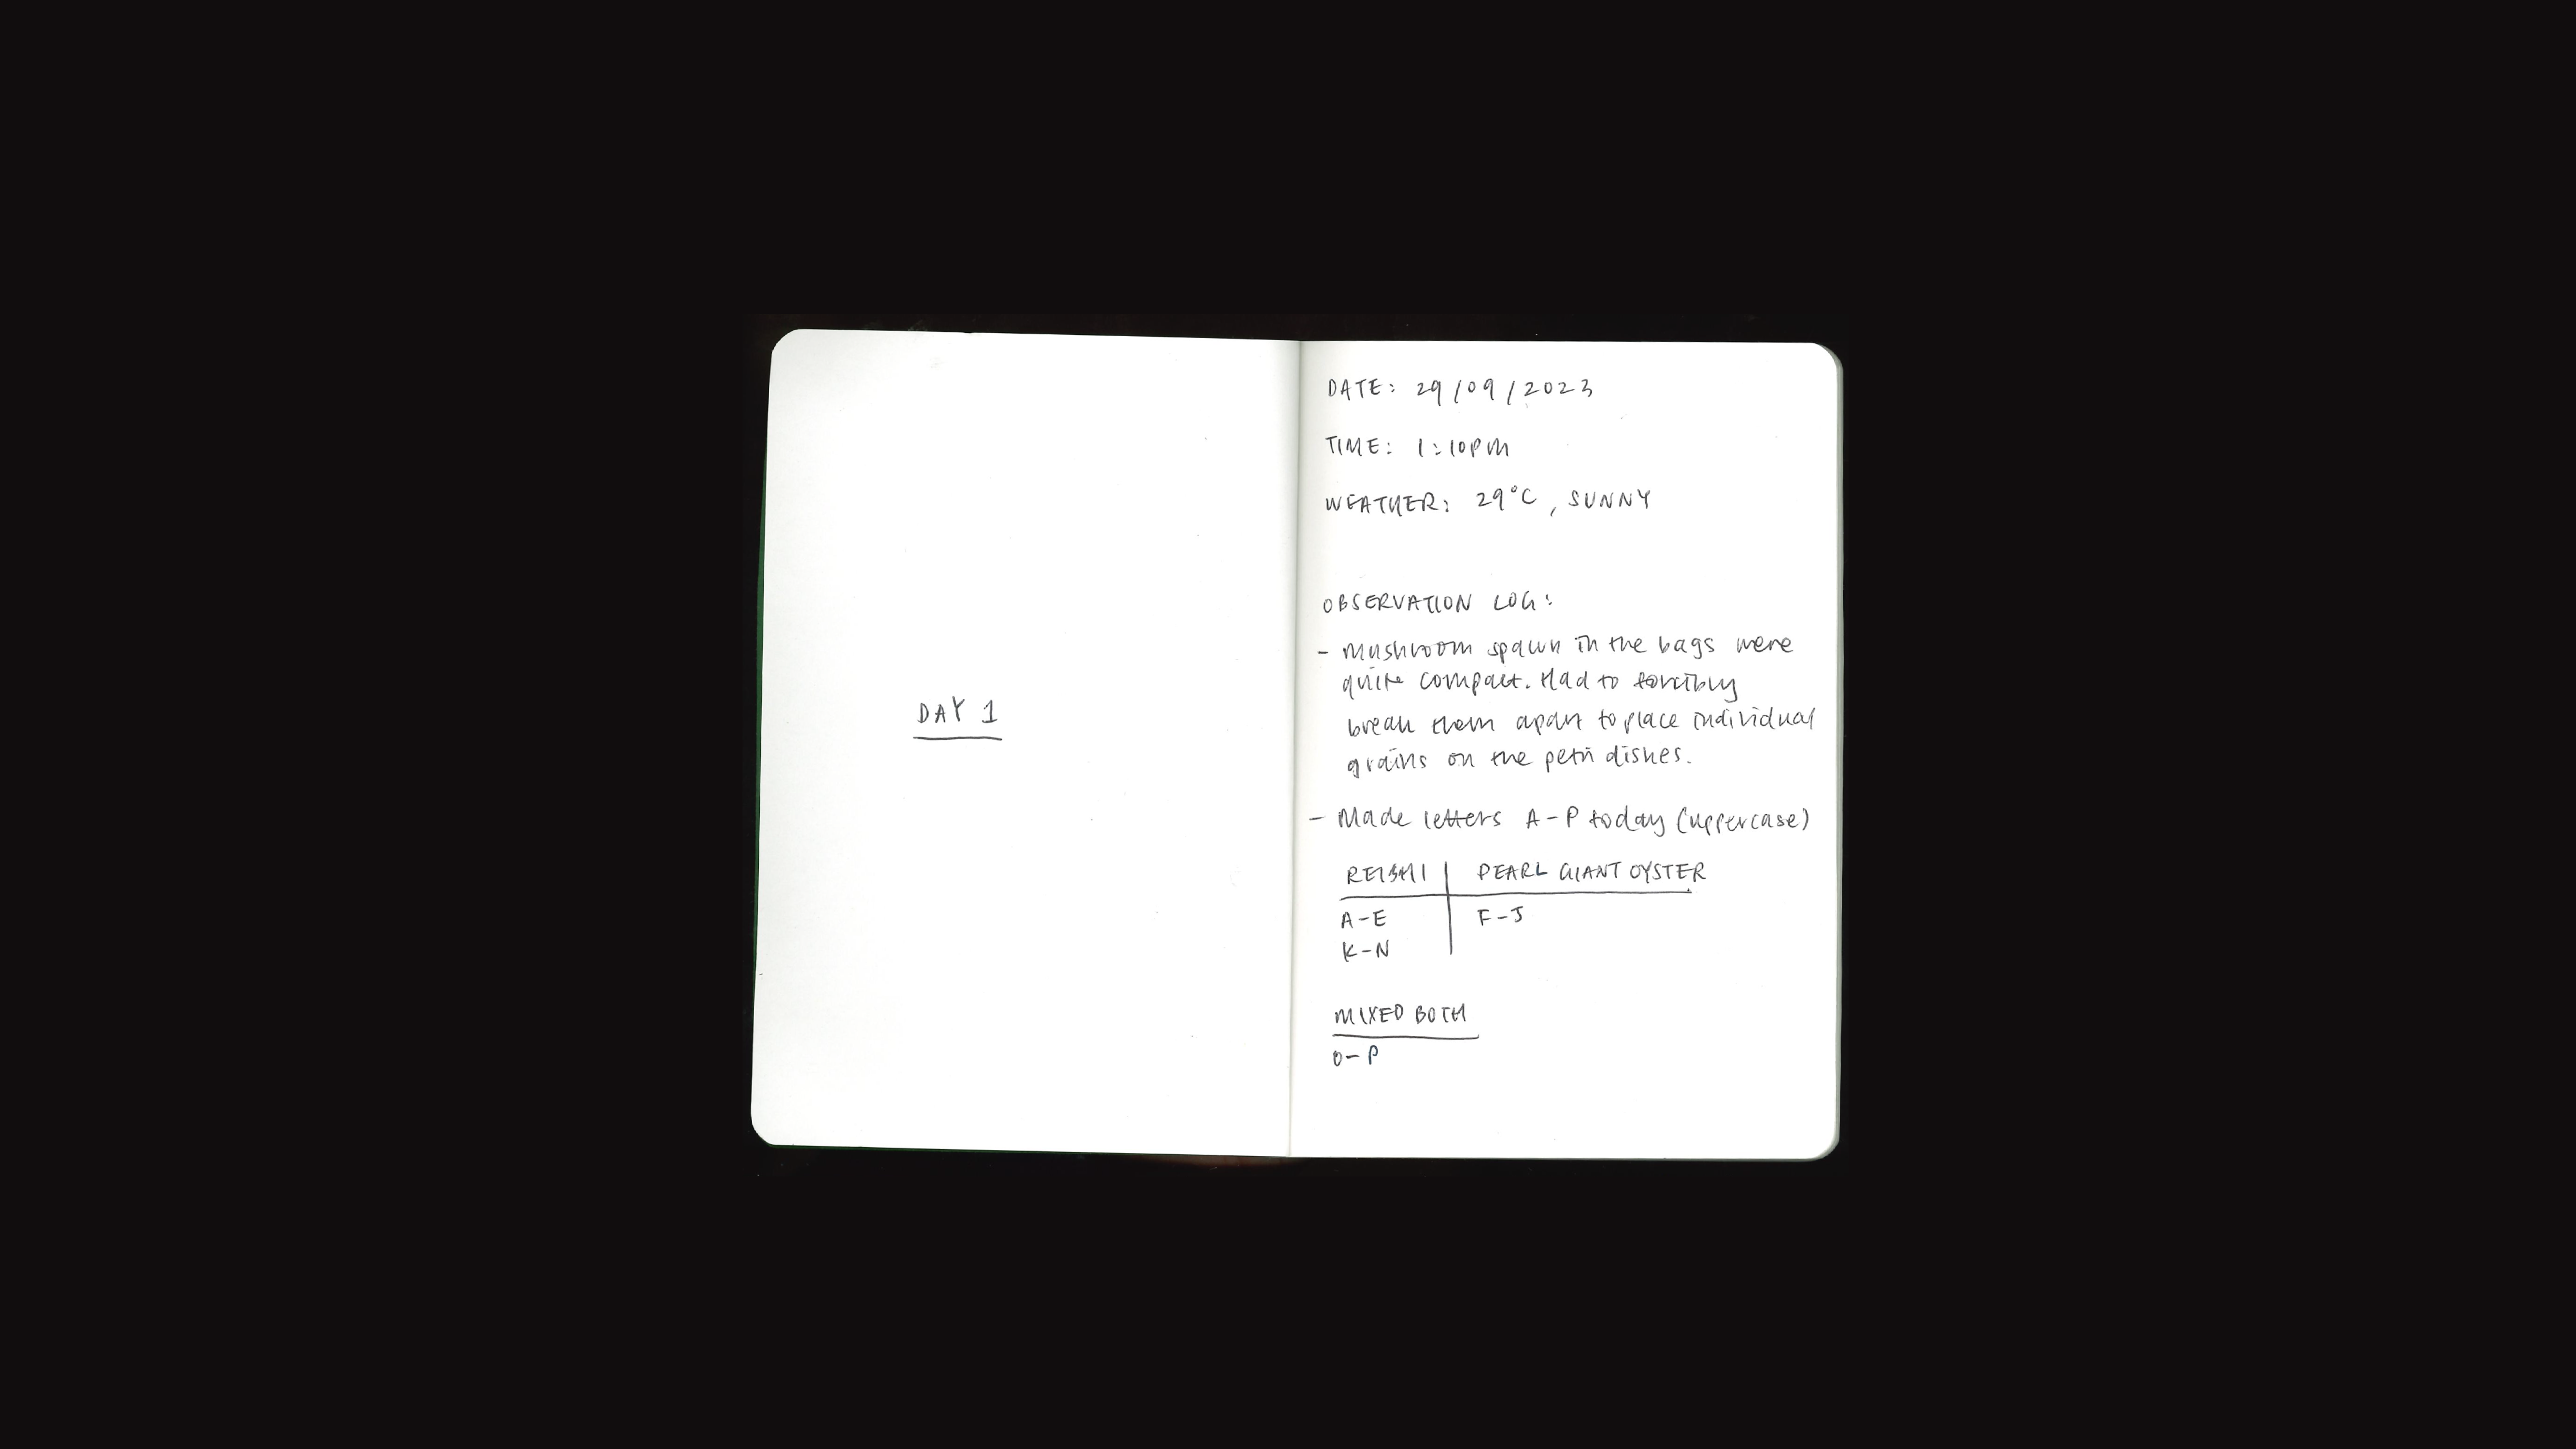 DAY 1
DATE: 29/09/2023
TIME: 1:10PM
WEATHER: 29°C, SUNNY
OBSERVATION LOG:
- Mushroom spawn in the bags were
quite compact. Had to forcibly
break them apart to place individual
grains on the petri dishes.
- Made letters A-P today (uppercase)
REISHI | PEARL GIANT OYSTER
A-E | F-J
K-N
MIXED BOTH
O-P